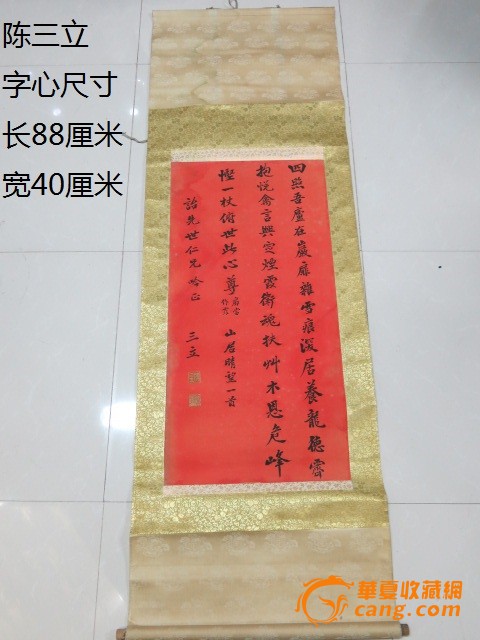 陈三立
字心尺寸
长88厘米
宽40厘米
四照吾庐在岩扉杂雪痕深居养龙德露
抱悦禽言兴定煌霞卫魂扶艸木恩危峰
慳一杖俯世此心尊 山居晴望一首
世仁兄吟正
三立
華夏收藏網
cang.com